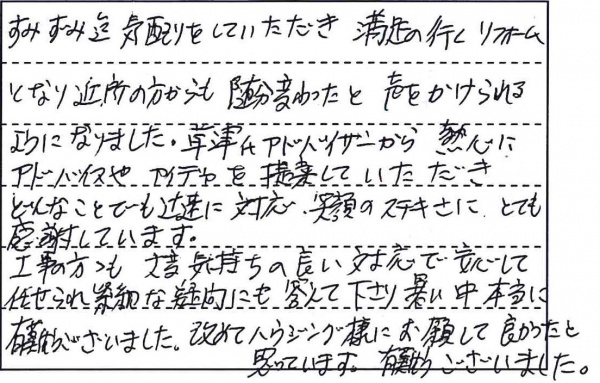 すみずみ迄 気配りをしていただき 満足の行く リフォーム
となり 近所の方からも 随分変わったと 声をかけられる
ようになりました。草津 アドバイザーから 熱心に
アドバイスや アイデアを 提案して いただき
どんなことでも 迅速に 対応、笑顔のステキさに とても
感謝しています。
工事の方々も 大変 気持ちの良い 対応で 安心して
任せられ 些細な疑問にも 答えて下さり 暑い中 本当に
有難うございました。改めて ハウジング様に お願して 良かったと
思っています。有難うございました。